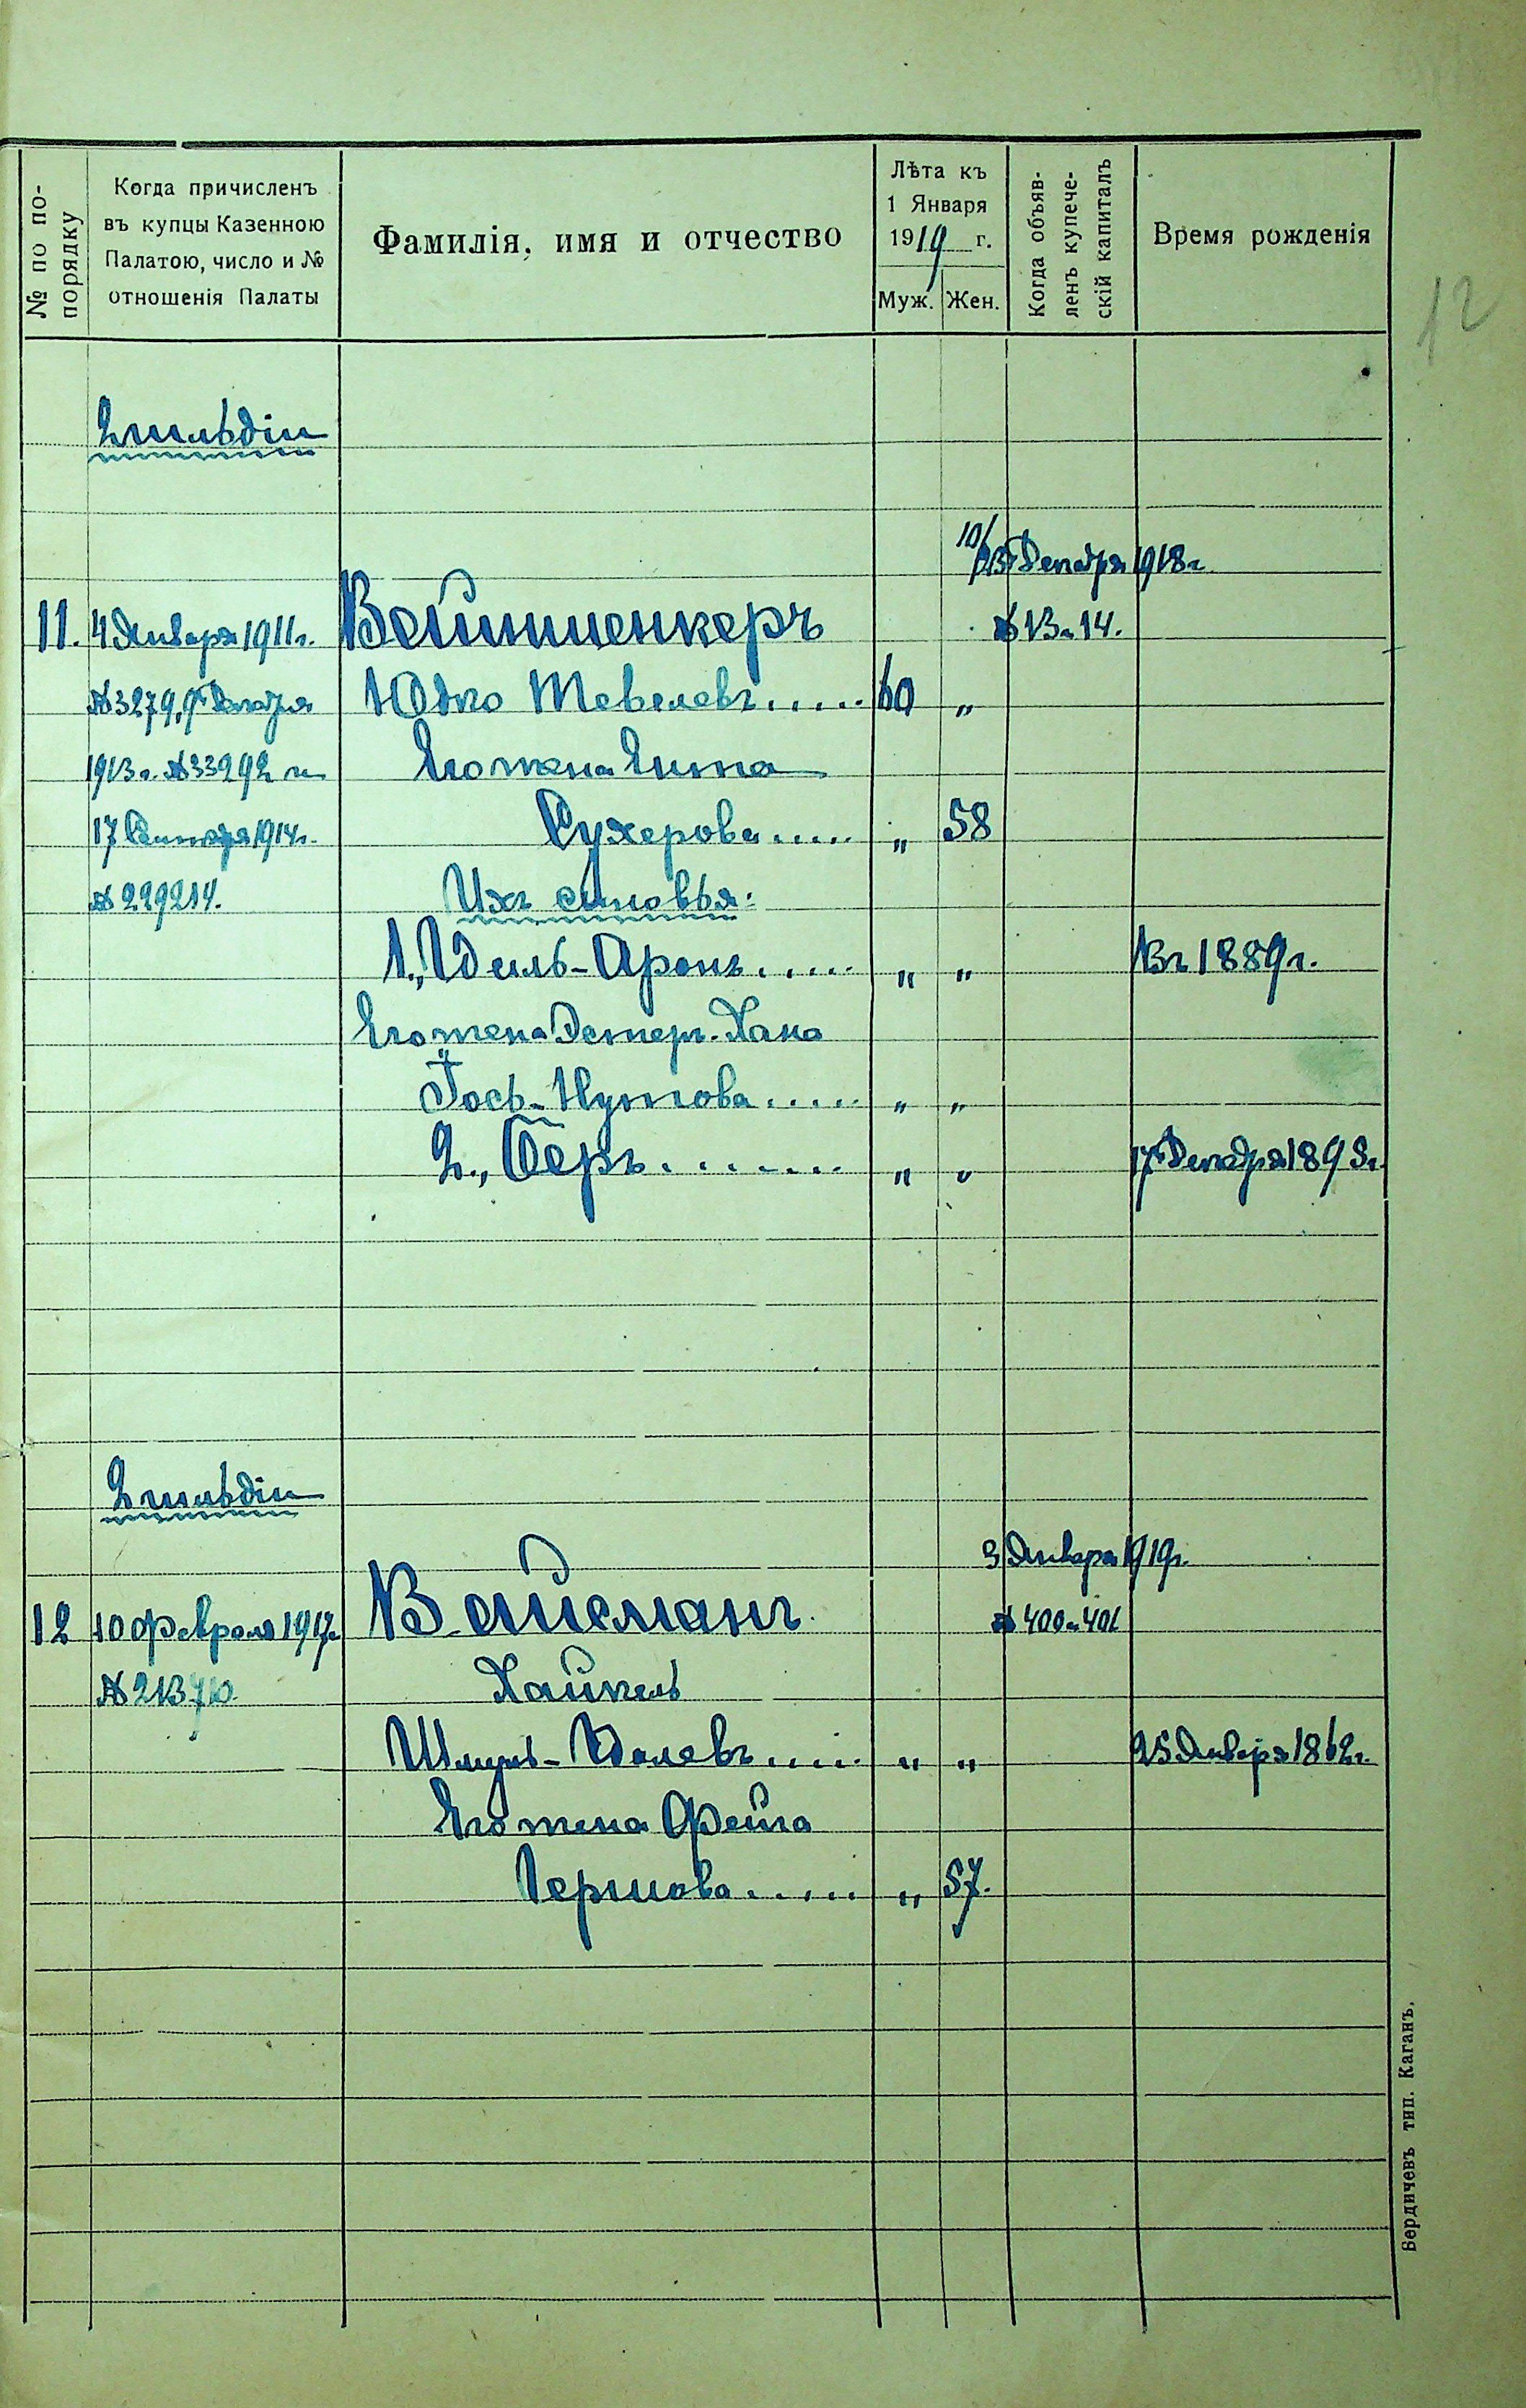 № по по-
порядку
Когда причисленъ
въ купцы Казенною
Палатою, число и №
отношенія Палаты
Фамилія, имя и отчество
Лѣта къ
1 Января
1919 г.
Муж. Жен.
Когда объяв-
ленъ купече-
скій капиталъ
Время рожденія
12
2 гильдіи
10/23 Декабря 1918 г.
11. 4 Января 1911 г. Вейншенкеръ № 13 и 14.
№ 3279, 9 Декабря Юдко Тевелевъ..... 60 „
1913 г. № 33292 и Его жена Ента
17 Сентября 1914 г. Сухерова..... „ 58
№ 229214. Ихъ сыновья:
1., Идель-Аронъ..... „ „ Въ 1889 г.
Его жена Эстеръ-Хана
Іось-Нутова..... „ „
2., Беръ........ „ „ 17 Декабря 1893 г.
2 гильдіи
3 Января 1919 г.
12 10 Февраля 1917 г. Вайсманъ № 400 и 401
№ 21370 Хайкель
Шмуль-Иделевъ..... „ „ 25 Января 1862 г.
Его жена Фейга
Гершова..... „ 57.
Бердичевъ тип. Каганъ.